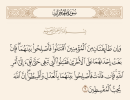 سورة الحجرات
وَإِن طَائِفَتَانِ مِنَ الْمُؤْمِنِينَ اقْتَتَلُوا فَأَصْلِحُوا بَيْنَهُمَا فَإِن
بَغَتْ إِحْدَاهُمَا عَلَى الْأُخْرَى فَقَاتِلُوا الَّتِي تَبْغِي حَتَّى تَفِيءَ إِلَى أَمْرِ
اللَّهِ فَإِن فَاءَتْ فَأَصْلِحُوا بَيْنَهُمَا بِالْعَدْلِ وَأَقْسِطُوا إِنَّ اللَّهَ
يُحِبُّ الْمُقْسِطِينَ